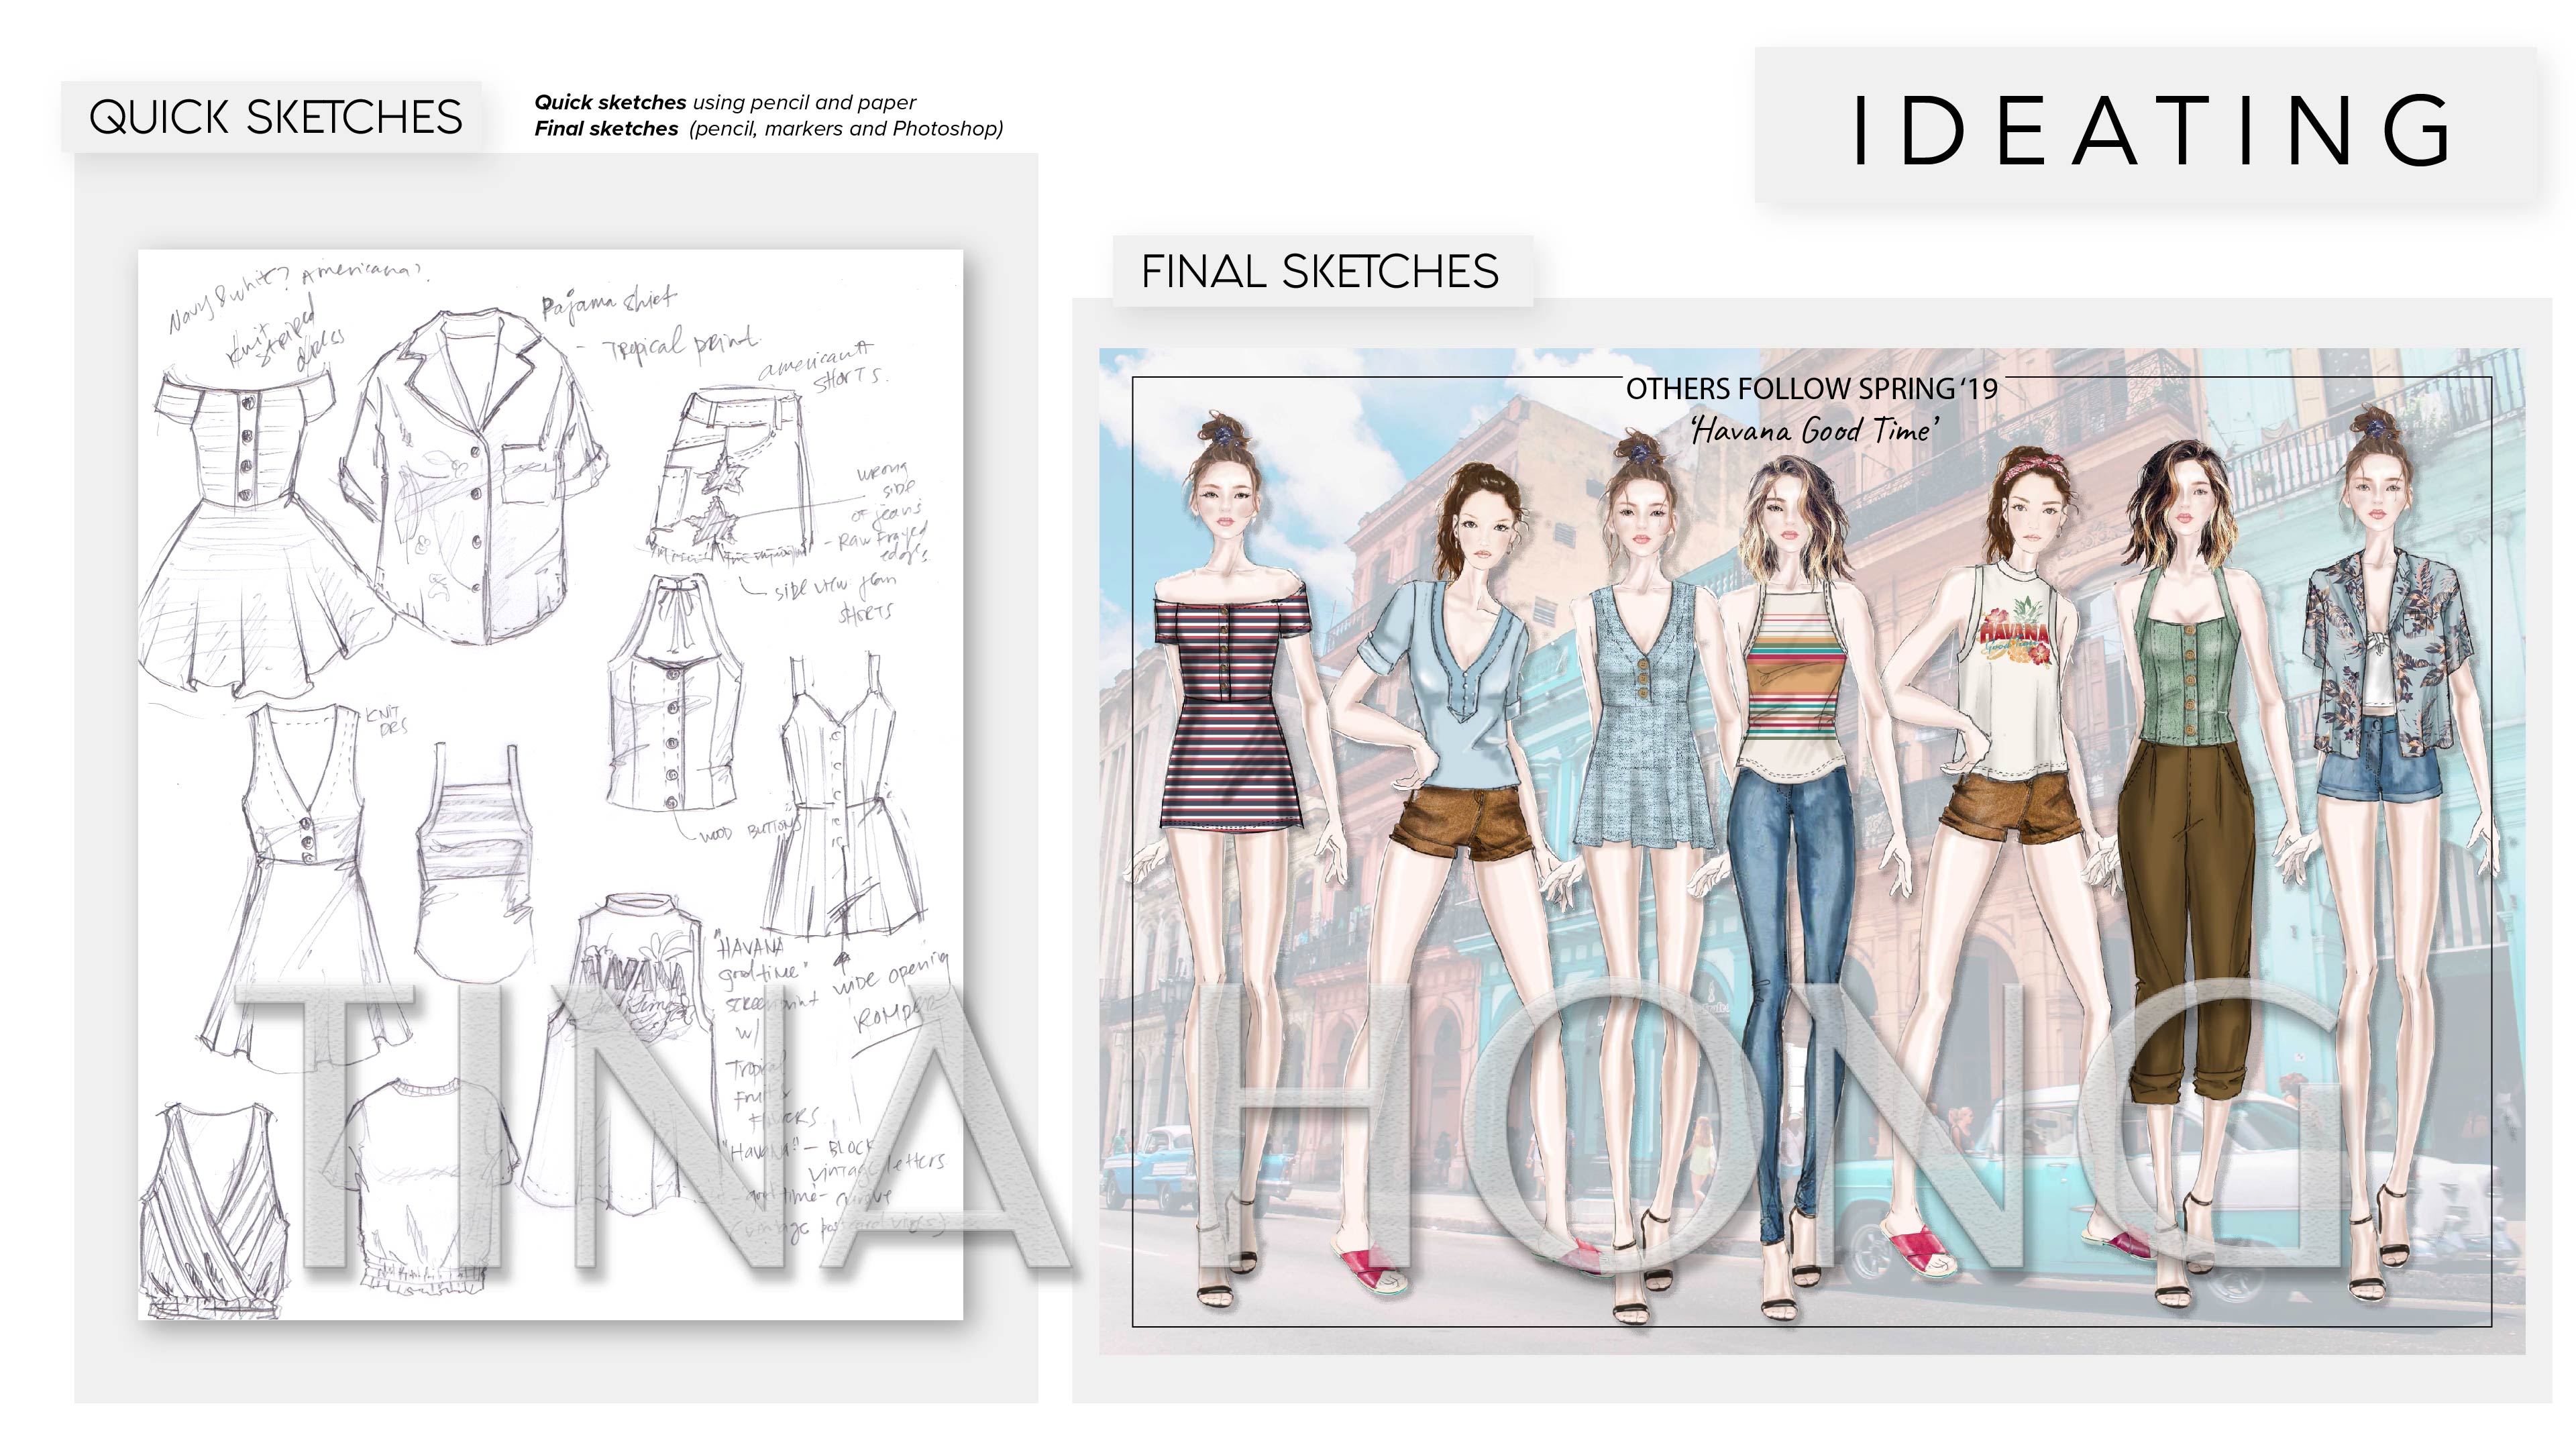 QUICK SKETCHES
Quick sketches using pencil and paper
Final sketches (pencil, markers and Photoshop)
IDEATING
Navy & white? Americana?
Knit
striped
dress
Pajama shirt
- Tropical print
americana
SHORTS.
wrong
side
of jeans
- Raw frayed
edges
side view jean
SHORTS
KNIT
DRS
WOOD BUTTONS
"HAVANA
good time"
screenprint
w/
Tropical
fruit &
Flowers
wide opening
ROMPER
"Havana" - BLOCK
vintage letters
- good time -
HAVANA
FINAL SKETCHES
OTHERS FOLLOW SPRING '19
'Havana Good Time'
HAVANA
TINA HONG